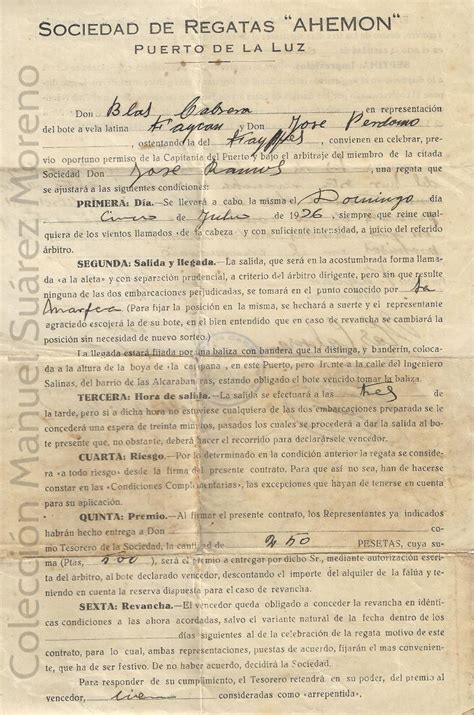 SOCIEDAD DE REGATAS "AHEMON"
PUERTO DE LA LUZ
Don Blas Cabrera en representación
del bote a vela latina y Don José Perdomo
ostentando la del convienen en celebrar, previo
oportuno permiso de la Capitanía del Puerto y bajo el arbitraje del miembro de la citada
Sociedad Don José Ramos, una regata que
se ajustará a las siguientes condiciones:
PRIMERA: Día.—Se llevará a cabo la misma el Domingo día
Cinco de Julio de 1926, siempre que reine cualquiera
de los vientos llamados «de la cabeza» y con suficiente intensidad, a juicio del referido
árbitro.
SEGUNDA: Salida y llegada.—La salida, que será en la acostumbrada forma llamada
«a la aleta» y con separación prudencial, a criterio del árbitro dirigente, pero sin que resulte
ninguna de las dos embarcaciones perjudicadas, se tomará en el punto conocido por La
(Para fijar la posición en la misma, se hechará a suerte y el representante
agraciado escojerá la de su bote, en el bien entendido que en caso de revancha se cambiará la
posición sin necesidad de nuevo sorteo.)
La llegada estará fijada por una baliza con bandera que la distinga, y banderín, colocada
a la altura de la boya de «la campana», en este Puerto, pero frente a la calle del Ingeniero
Salinas, del barrio de las Alcarabaneras, estando obligado el bote vencido tomar la baliza.
TERCERA: Hora de salida.—La salida se efectuará a las tres de
la tarde, pero si a dicha hora no estuviese cualquiera de las dos embarcaciones preparada se le
concederá una espera de treinta minutos, pasados los cuales se procederá a dar la salida al
bote presente que, no obstante, deberá hacer el recorrido para declarársele vencedor.
CUARTA: Riesgo.—Por lo determinado en la condición anterior la regata se considera
«a todo riesgo» desde la firma del presente contrato. Para que así no sea, han de hacerse
constar en las «Condiciones Complementarias», las excepciones que hayan de tenerse en cuenta
para su aplicación.
QUINTA: Premio.—Al firmar el presente contrato, los Representantes ya indicados
habrán hecho entrega a Don como
Tesorero de la Sociedad, la cantidad de 250 PESETAS, cuya suma
(Ptas, 500), será el premio a entregar por dicho Sr., mediante autorización escrita
del árbitro, al bote declarado vencedor, descontando el importe del alquiler de la falúa y teniendo
en cuenta la reserva dispuesta para el caso de revancha.
SEXTA: Revancha.—El vencedor queda obligado a conceder la revancha en idénticas
condiciones a las ahora acordadas, salvo el variante natural de la fecha dentro de los
días siguientes al de la celebración de la regata motivo de este
contrato, para lo cual, ambas representaciones, puestas de acuerdo, fijarán el mas conveniente,
que ha de ser festivo. De no haber acuerdo, decidirá la Sociedad.
Para responder de su cumplimiento, el Tesorero retendrá en su poder, del premio al
vencedor, cien consideradas como «arrepentida».
Colección Manuel Suárez Moreno